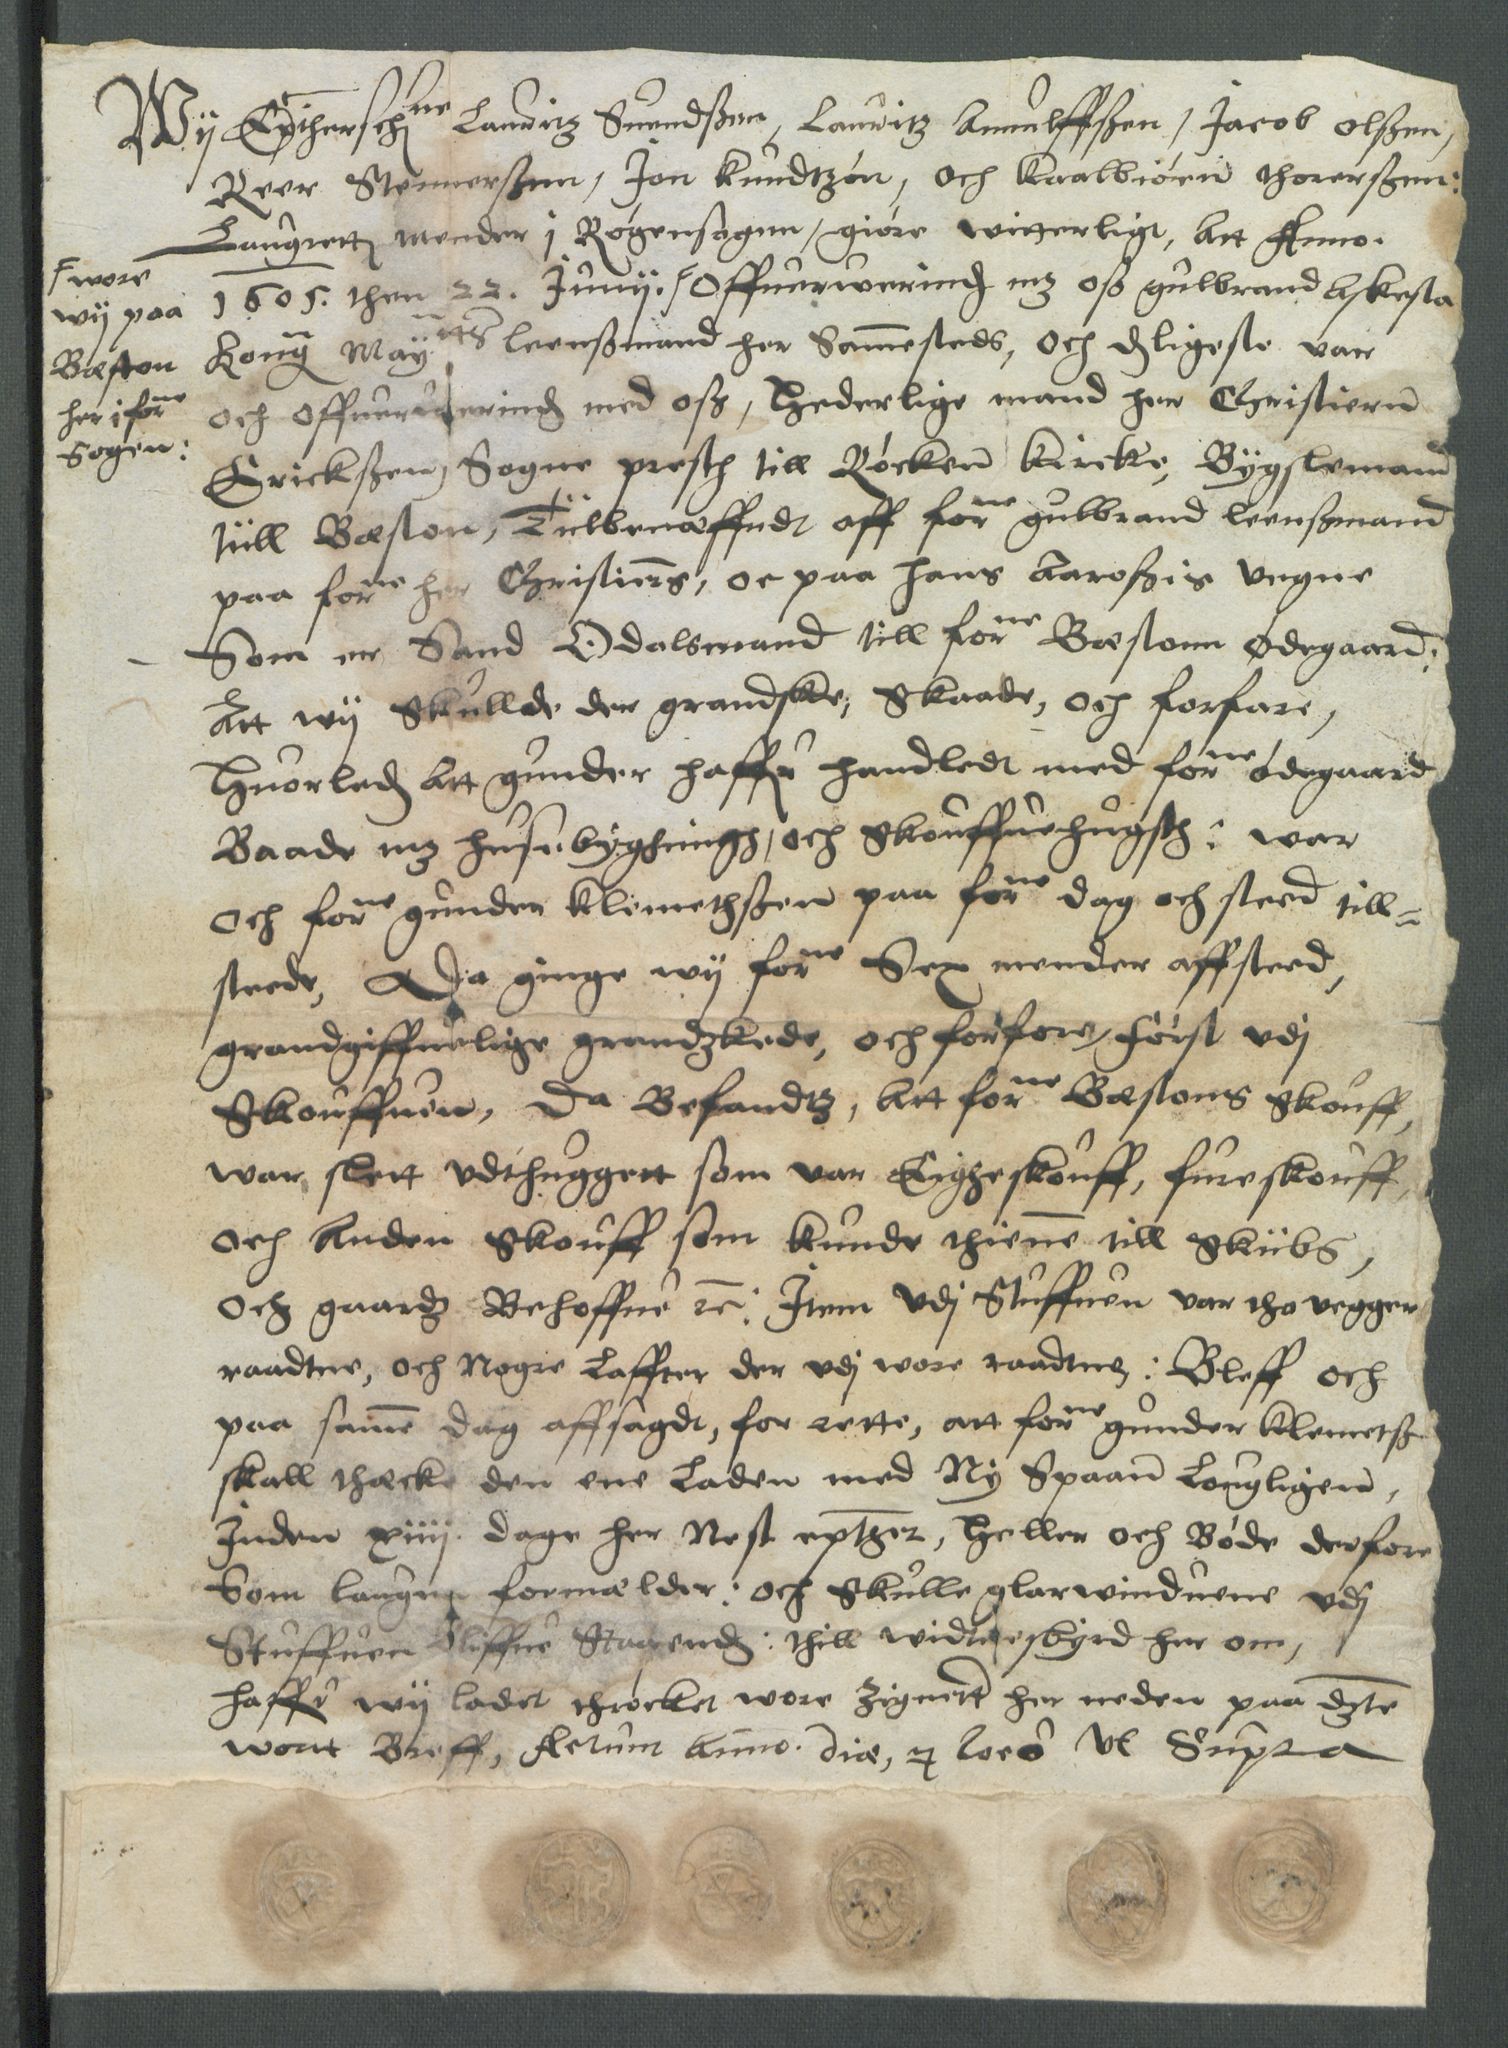 Wij Epthersch:ne Lauritz Suendßenn, Lauritz Anulffßen, Jacob Olßen,
Reer Stennerßenn, Jon Knudtzøn, och Kaalbiörn Thorerßenn:
Laugrett mender i Røgensogenn, giøre witterligt, Att Anno.
1605. then 22. Junij. Offuerwerind mz oß Gulbrand Askesta
wore
wij paa
Bøston
her i for:ne
Sogen:
Kong: May:tts leenßmand her Sammesteds, och dligeste var
och offueruerind med oß, Hederlige mand her Christiern
Erickßen, Sogne presth till Røcken kircke, Bygslemand
till Bøston, Tilbenæffndt aff for:ne Gulbrand leenßmand
paa for:ne her Christierns, oc paa hans vegne
Som er Sand Odalsmand till for:ne Bøstonn ødegaard:
Att wij Skullde der grandske, Skaade, och forfare,
Huorled Att Gunder haffr handledt med for:ne ødegaard
Baade mz huse bygningh, och Skouffuehugsth: war
och for:ne Gunder Klemethßenn paa for:ne dag och steed till=
steede, Da ginge wij for:ne Sex mender affsteed,
grandgiffuelige grandzkede, och forfore, Først vdj
Skouffuen, Da Befandtz, Att for:ne Bøstons Skouff,
war slett vdthuggett som var Eigheskouff, fureskouff,
och Anden Skouff som kunde thiene till Skibs,
och gaards Behoffue etc: Item vdj Stuffuen var tho vegger
raadtne, och Nogre Laffter der vdj wore raadtne: Bleff och
paa samme dag affsagdt, for rette, att for:ne Gunder Klemetß
skall thæcke den ene Laden med Ny Spaan Lougligen,
Inden xiiij. dage her Nest epther, Heller och Bøde derfore
Som laugen formælder: och Skulle glarwinduene vdj
Stuffuen bliffue Staaend: thill widtneskyrd her om,
haffr wij ladet throcket wore Zignett her neden paa dzte
wortt Breff, Actum Anno. die, et loco Vt Supra